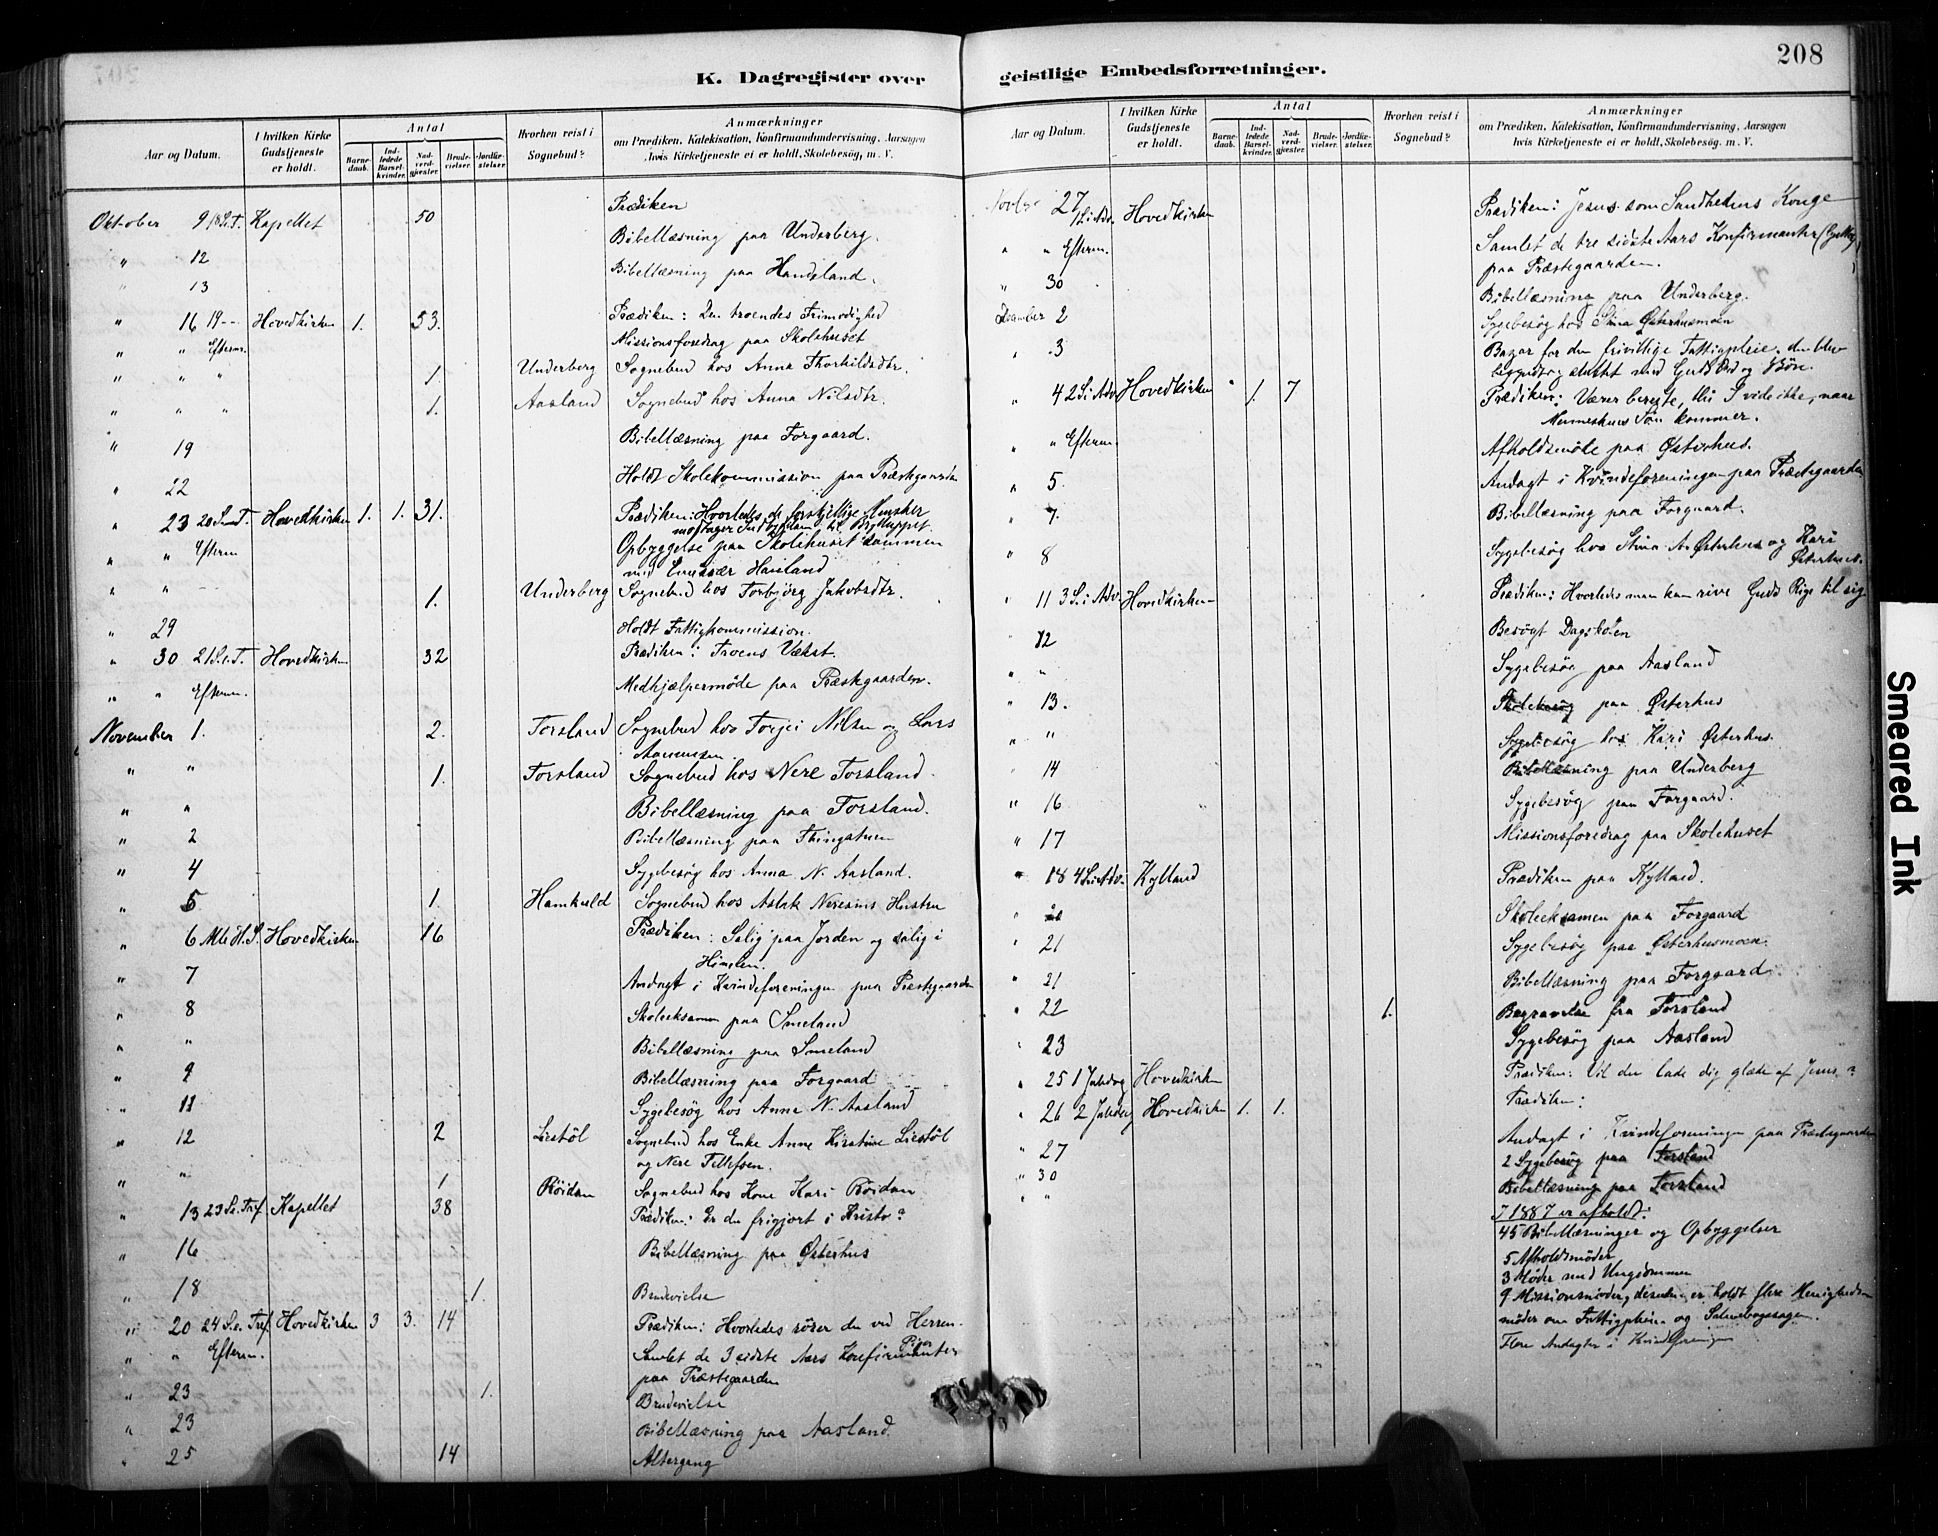 208
K. Dagregister over geistlige Embedsforretninger.
Aar og Datum.
I hvilken Kirke Gudstjeneste er holdt.
Antal
Barne-daab.
Ind-ledede Barsel-kvinder.
Nad-verd-gjæster.
Brude-vielser.
Jordfæ-stelser.
Hvorhen reist i Sognebud?
Anmærkninger
om Prædiken, Katekisation, Konfirmandundervisning, Aarsagen
hvis Kirketjeneste ei er holdt, Skolebesøg, m. V.
Oktober 9 18 S.e.T. Kapellet 50 Prædiken
" 12 Bibellæsning paa Underberg.
" 13 Bibellæsning paa Handeland.
" 16 19 -- Hovedkirken 1. 53. Prædiken: Den troendes Frimodighed
" " Efterm. Missionsforedrag paa Skolehuset
" " " 1. Underberg Sognebud hos Anna Thorkildsdtr.
" " " 1. Aasland Sognebud hos Anna Nilsdtr.
" 19 Bibellæsning paa Forgaard.
" 22 Holdt Skolekommission paa Præstegaarden
" 23 20 S.e.T. Hovedkirken 1. 1. 31. Prædiken: Hvorledes de forskjellige Mensker
modtager Indbydelsen til Brylluppet.
" " Efterm Opbyggelse paa Skolehuset sammen
med Emissær Hausland
" " 1. Underberg Sognebud hos Torbjörg Jakobsdtr.
" 29 Holdt Fattigkommission.
" 30 21 S.e.T. Hovedkirken 32 Prædiken: Troens Vækst.
" " Efterm. Medhjælpermöde paa Præstegaarden.
November 1. 2. Torsland Sognebud hos Torjei Nilsen og Lars
Aanensen
" " 1. Torsland Sognebud hos Nere Torsland.
" " Bibellæsning paa Torsland.
" 2 Bibellæsning paa Thingstuen
" 4 Sygebesøg hos Anna N. Aasland.
" 5 1. Hamkold Sognebud hos Aslak Neresens Hustru
" 6 Alle H. S. Hovedkirken 16 Prædiken: Salig paa Jorden og salig i
Himlen.
" 7 Andagt i Kvindeforeningen paa Præstegaarden
" 8 Skoleeksamen paa Smeland
" " Bibellæsning paa Smeland
" 9 Bibellæsning paa Forgaard
" 11 Sygebesøg hos Anne N. Aasland
" 12 2 Liestöl Sognebud hos Enke Anne Kirstine Liestöl
og Nere Tellefsen.
" " 1 Röidan Sognebud hos Kone Kari Röidan
" 13 23 S.e. Tref. Kapellet 38 Prædiken: Er du frigjort i Kristo?
" 16 Bibellæsning paa Østerhus
" 18 1. Brudevielse
" 20 24 S.e. Tref. Hovedkirken 3 3. 14 Prædiken: Hvorledes rörer du ved Herren.
" " Efterm. Samlet de 3 sidste Aars Konfirmanter Piger
paa Præstegaarden
" 23 1. Brudevielse
" 23 Bibellæsning paa Aasland.
" 25 14 Altergang
Aar og Datum.
I hvilken Kirke Gudstjeneste er holdt.
Antal
Barne-daab.
Ind-ledede Barsel-kvinder.
Nad-verd-gjæster.
Brude-vielser.
Jordfæ-stelser.
Hvorhen reist i Sognebud?
Anmærkninger
om Prædiken, Katekisation, Konfirmandundervisning, Aarsagen
hvis Kirketjeneste ei er holdt, Skolebesøg, m. V.
Novbr 27 1 S. i Adv. Hovedkirken Prædiken: Jesus som Sandhedens Konge
" " Efterm. Samlet de tre sidste Aars Konfirmanter (Gutter)
paa Præstegaarden.
" 30 Bibellæsning paa Underberg.
December 2 Sygebesøg hos Stina Østerhusmoen
" 3 Bazar for den frivillige Fattigpleie. den blev
begyndt og sluttet med Guds Ord og Bön.
" 4 2 S. i Adv. Hovedkirken " 1. 7 Prædiken: Værer berejte, thi I vide ikke, naar
Menneskens Sön kommer.
" " Efterm. Afholdsmöte paa Østerhus.
" 5 Andagt i Kvindeforeningen paa Præstegaarden
" 7. Bibellæsning paa Forgaard.
" 8 Sygebesøg hos Stina A. Østerhus og Kari
Østerhus.
" 11 3 S. i Adv. Hovedkirken Prædiken: Hvorledes man kan rive Guds Rige til sig
" 12 Besögt Dagskolen
" " Sygebesøg paa Aasland
" 13. Skolebesøg paa Østerhus
" " Sygebesøg hos Kari Østerhus.
" 14 Bibellæsning paa Underberg
" 16 Sygebesøg paa Forgaard.
" 17 Missionsforedrag paa Skolehuset
" 18 4 S. i Adv. Kylland Prædiken paa Kylland.
" Skoleeksamen paa Forgaard
" 21 Sygebesøg paa Østerhusmoen.
" 21 Bibellæsning paa Forgaard.
" 22 1. Begravelse fra Torsland
" 23 Sygebesøg paa Aasland
" 25 1 Juledag Hovedkirken Prædiken: Vil du lade dig glæde af Jesus?
" 26 2 Juledag Hovedkirken 1. 1. Prædiken:
" 27 Andagt i Kvindeforeningen paa Præstegaarden
" 30 2 Sygebesøg paa Torsland
" " Bibellæsning paa Torsland
I 1887 er afholdt:
45 Bibellæsninger og Opbyggelser
5 Afholdsmöder
3 Möder med Ungdommen
9 Missionsmöder, desuden er holdt flere Menigheds
möder om Fattigpleien og Salmebogssagen.
Flere Andagter i Kvindeforeningen
Smeared Ink